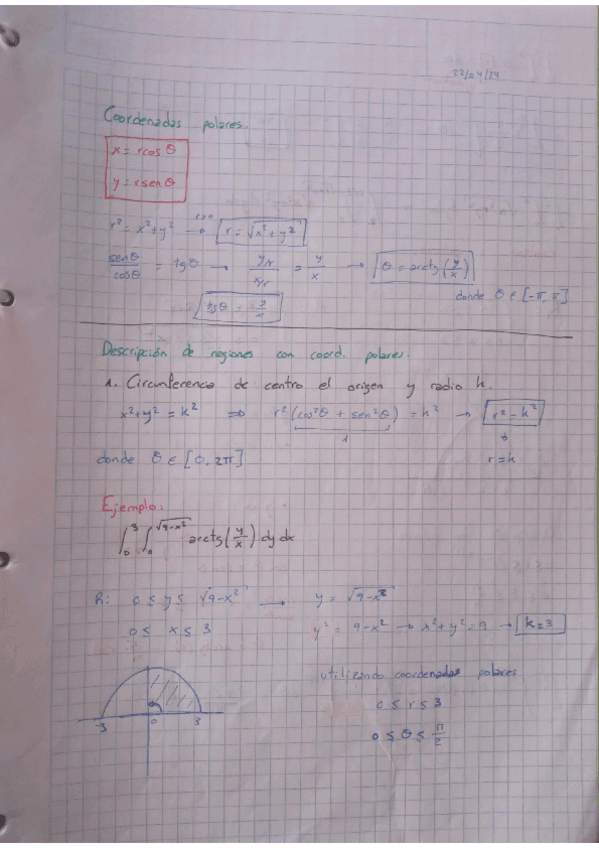 22/04/24
Coordenadas polares.
x = rcos θ
y = rsen θ
r² = x²+y² r>0 → r = √x²+y²
senθ/cosθ = tgθ → (y/r)/(x/r) = y/x → θ = arctg(y/x)
tgθ = y/x donde θ ∈ [-π, π]
Descripción de regiones con coord. polares.
1. Circunferencia de centro el origen y radio k.
x²+y² = k² ⇒ r²(cos²θ + sen²θ) = k² → r² = k²
1
donde θ ∈ [0, 2π] r=k
Ejemplo:
∫₀³ ∫₀^√9-x² arctg(y/x) dy dx
R: 0 ≤ y ≤ √9-x² → y = √9-x²
0 ≤ x ≤ 3 y² = 9-x² → x²+y²=9 → k=3
utilizando coordenadas polares
0 ≤ r ≤ 3
0 ≤ θ ≤ π/2
-3 0 3